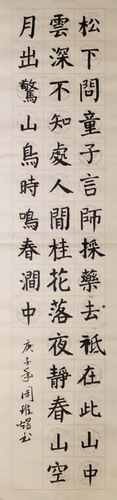 松下問童子言師採藥去祗在此山中
雲深不知處人間桂花落夜靜春山空
月出驚山鳥時鳴春澗中
庚子年周